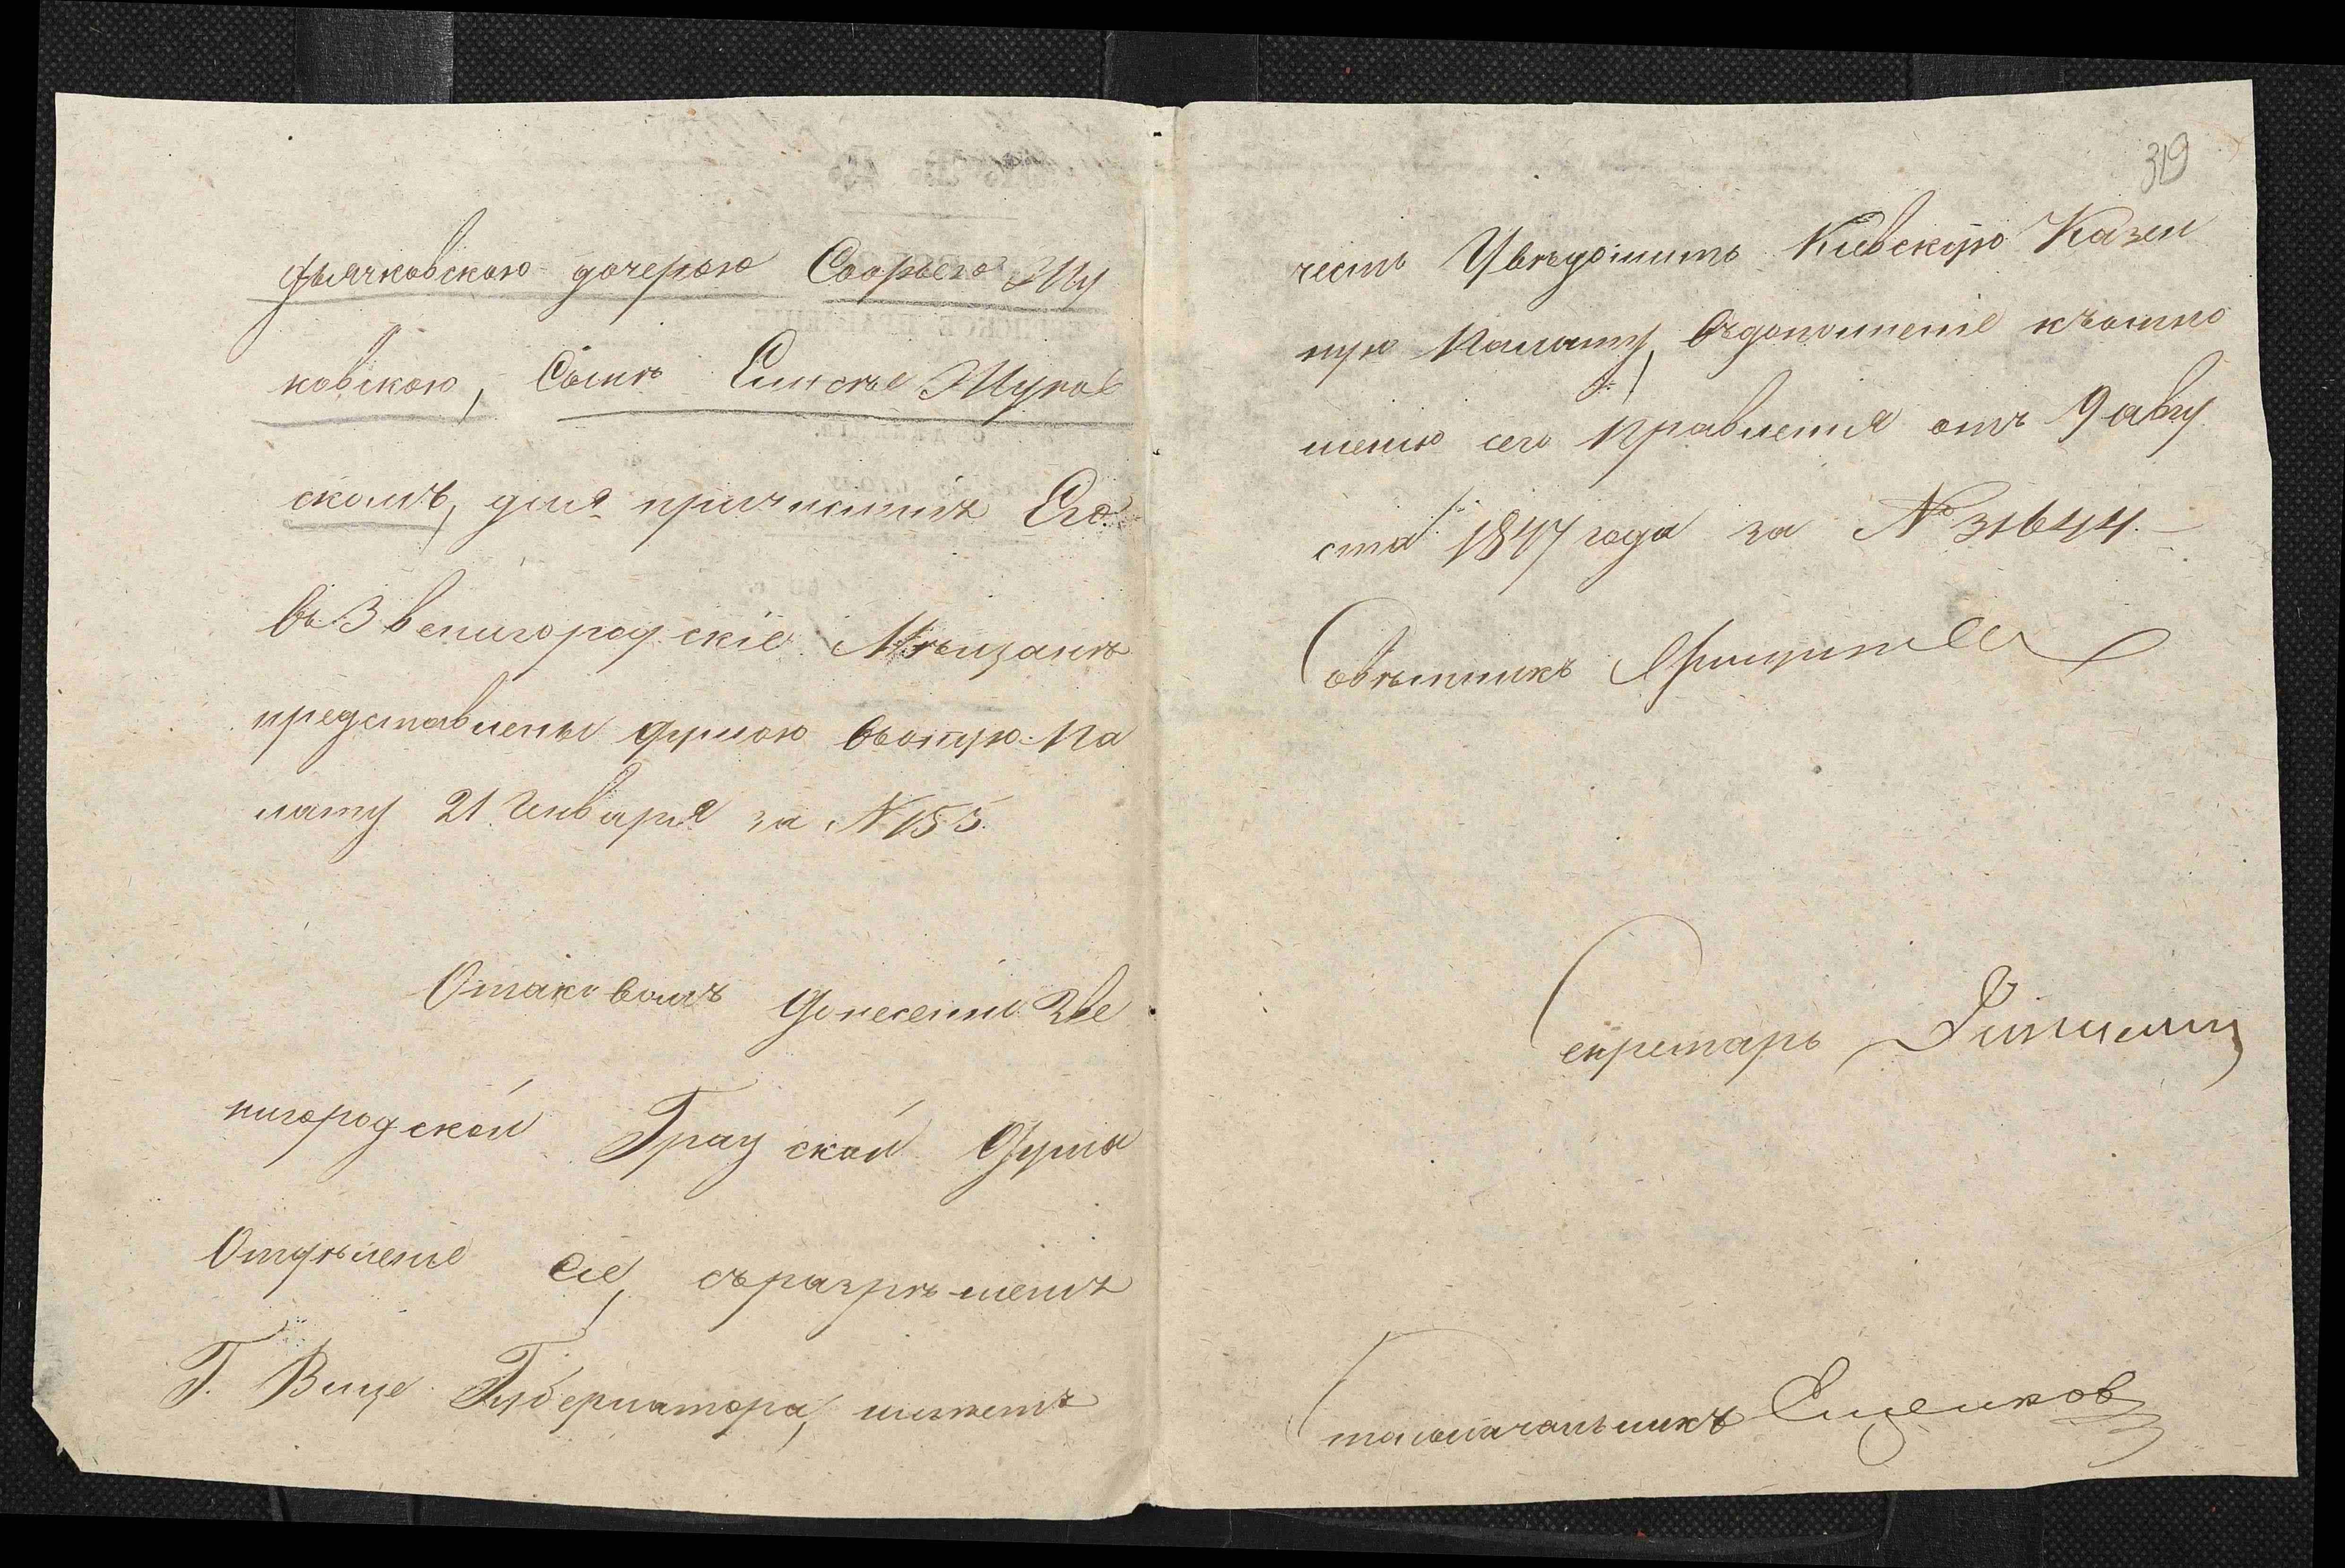 дьячковскою дочерою Софьею Жу
ковскою, Сынъ Елисѣе Жуков
скомъ, для причисленія Его
въ Звенигородскіе Мѣщане
представлены думою въ оную Па
лату 21 Генваря за № 155.
О таковомъ Донесеніи Зве
нигородской Градской Думы
Отдѣленіе сіе, съ разрѣшенія
Г. Вице Губернатора, имѣетъ
319
честь Увѣдомить Кіевскую Казен
ную Палату, въ дополненіе къ отно
шенію сего Правленія отъ 9 авгу
ста 1847 года за № 31644.
Совѣтникъ
Секретарь
Столоначальникъ Ещенков